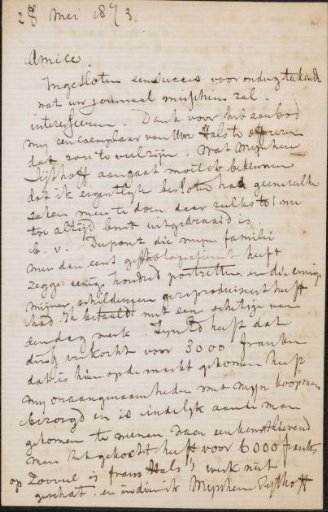 28 Mei 1873.
Amice.
Ingesloten een succes voor onderget
wat uw journaal misschien zal
interesseeren. Dank voor het aanbod
mij een exemplaar van Uwe Hals te offreren
dat zou te veel zijn. Wat Mijnheer
Sijthoff aangaat moet ik bekennen
dat ik eigentlijk besloten had geene zulke
zaken meer te doen daar zulks tot nu
toe altijd bont uitgedraaid is
b. v. Dupont die mijne familie
met den eent gephotografeert heeft
zegge honderd portretten en die eenige
mijner schilderijen gereproduceert heeft
had ik betaald met een schetsje van
een dag werk. Zijn Ed heeft dat
ding verkocht voor 3000 franken
dat is hier op de markt gekomen heeft
mij onaangenaamheden met mijn koopman
bezorgd en is eindelijk aan de man
gekomen te weenen naar een kunstlievend
men het gekocht heeft voor 6000 franks
op Zooveel is frans Hals's werk niet
geschat. en eindelijk Mijnheer Sijthoff